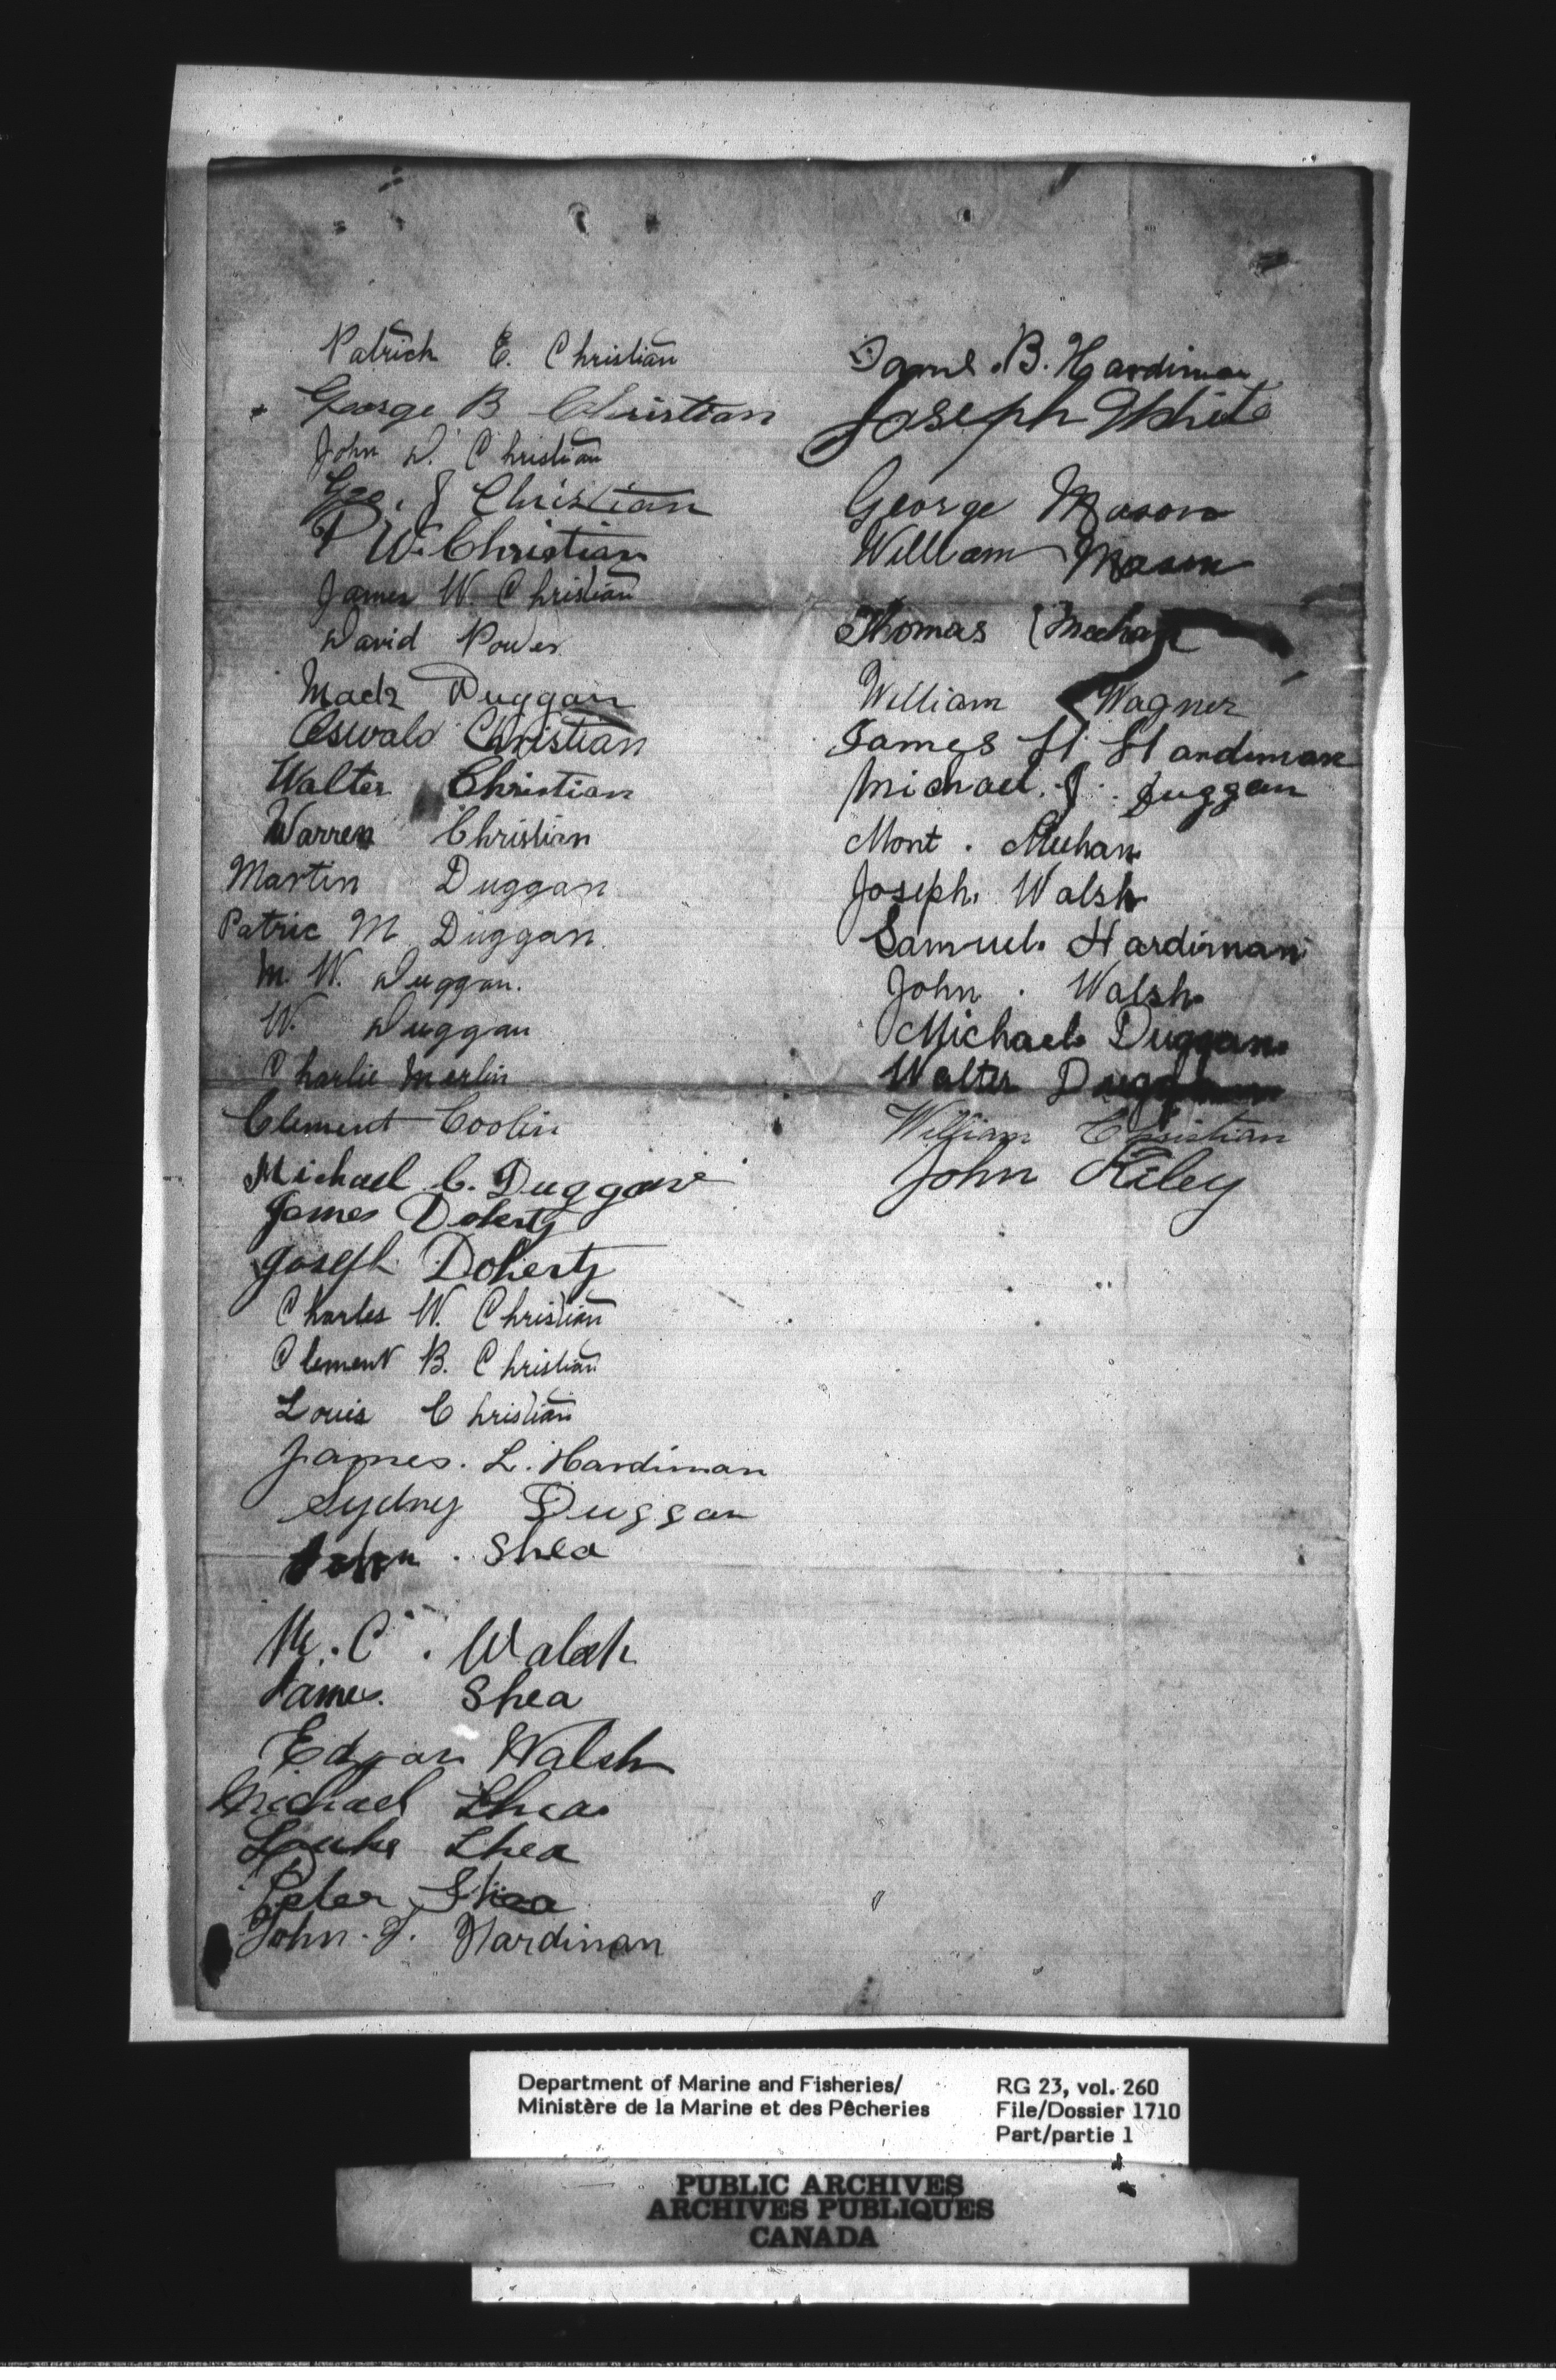 Patrick E. Christian
George B Christian
John D. Christian
Geo. J Christian
P W. Christian
James W. Christian
David Power
Mack Duggan
Oswald Christian
Walter Christian
Warren Christian
Martin Duggan
Patric M Duggan.
M. W. Duggan.
W. Duggan
Charlie Merlin
Clement Coolin
Michael C. Duggan
James Doherty
Joseph Doherty
Charles W. Christian
Clement B. Christian
Louis Christian
James. L. Hardiman
Sydney Duggan
John . Shea
M. C. Walsh
James. Shea
Edgar Walsh
Michael Shea
Luke Shea
Peter Shea
John. J. Hardiman
B. Hardiman
Joseph White
George Mason
William Mason
Thomas Meehan
William Wagner
James H Hardiman
Michael. J. Duggan
Mont . Meehan
Joseph. Walsh
Samuel. Hardiman
John . Walsh
Michael. Duggan
Walter Duggan
William Christian
John Riley
Department of Marine and Fisheries/
Ministère de la Marine et des Pêcheries
RG 23, vol. 260
File/Dossier 1710
Part/partie 1
PUBLIC ARCHIVES
ARCHIVES PUBLIQUES
CANADA